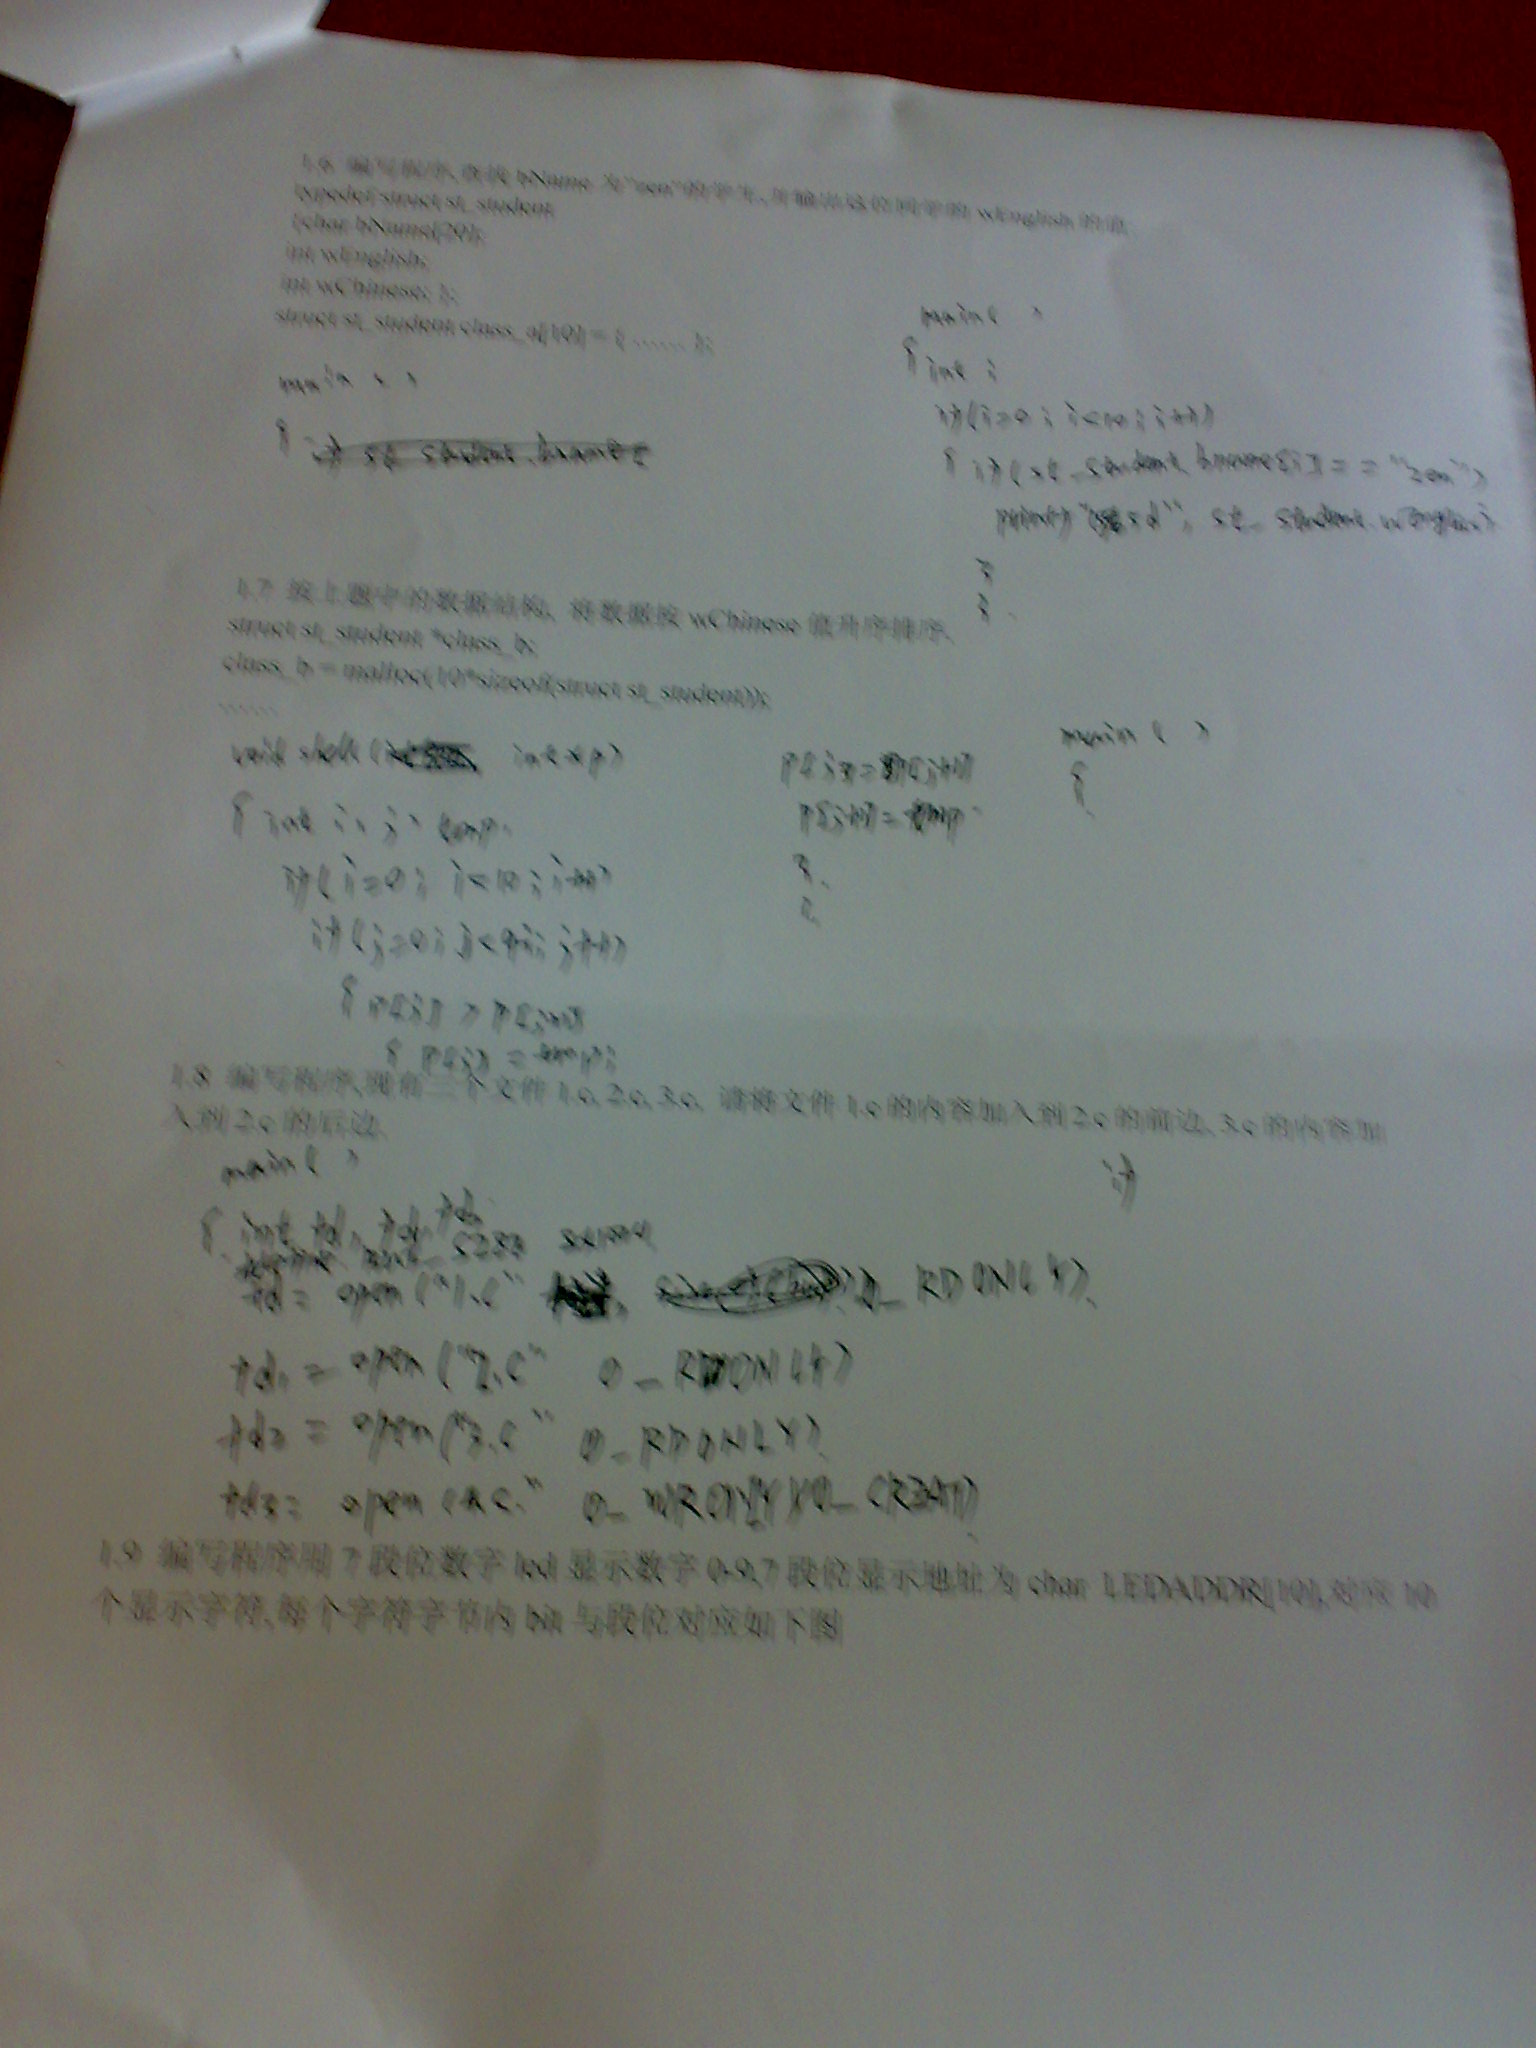 1.6 编写程序,查找 bName 为"zen"的学生,并输出这位同学的 wEnglish 的值.
typedef struct st_student
{char bName[20];
int wEnglish;
int wChinese; };
struct st_student class_a[10] = { ...... };
main ( )
{
main ( )
{ int i
if(i=0; i<10; i++)
{ if(st_student bname[i] == "zen")
printf "%d", st_student.wEnglish)
}
}
1.7 按上题中的数据结构, 将数据按 wChinese 值升序排序.
struct st_student *class_b;
class_b = malloc(10*sizeof(struct st_student));
......
void (int *p)
{ int i, j, temp.
if( i=0; i<10; i++)
if(j=0; j< j++)
{ P[j] > P[j+1]
{ P[j] = temp;
P[j]=P[j+1]
P[j+1]=temp.
}
}
main ( )
{
1.8 编写程序,现有三个文件 1.c, 2.c, 3.c, 请将文件 1.c 的内容加入到 2.c 的前边, 3.c 的内容加
入到 2.c 的后边.
main( )
if
{ int fd, fd1 fd2
fd = open ("1.c" O_RDONLY)
fd1 = open ("2.c" O_RDONLY)
fd2 = open("3.c" O_RDONLY)
fd3 = open O_CREAT)
1.9 编写程序用 7 段位数字 led 显示数字 0-9,7 段位显示地址为 char LEDADDR[10],对应 10
个显示字符,每个字符字节内 bit 与段位对应如下图